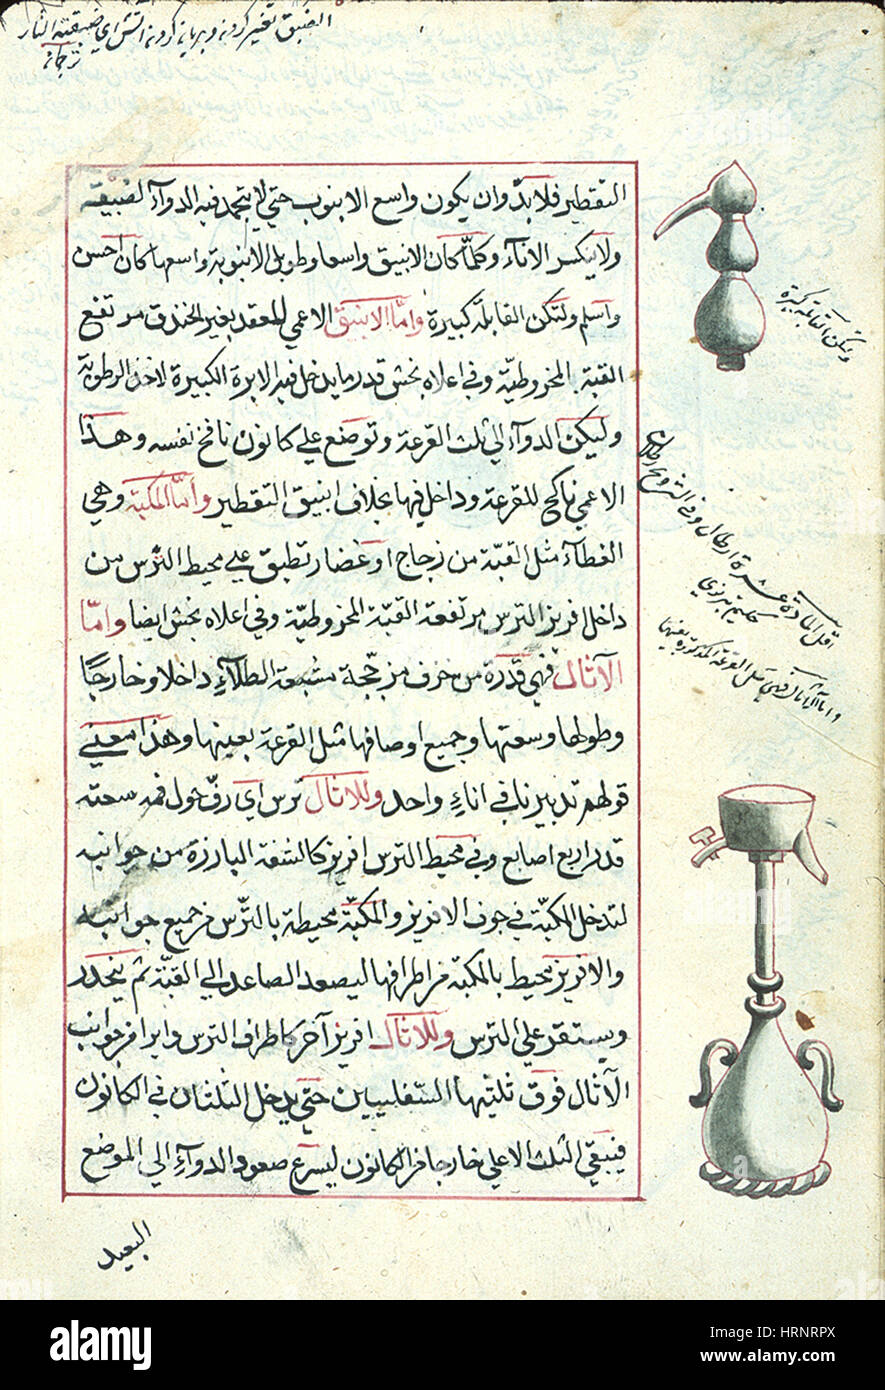 التقطير فلابدّ وان يكون واسع الانبوب حتي لا يتجمد فيه الدوآء لضيقه
ولا ينكسر الانآء وكلمّا كان الانبيق واسعا وطويل الانبوبة واسعها كان احسن
واسلم ولتكن القابلة كبيرة وامّا الانبيق الاعمي للمعقد بغير الخندق مرتفع
القبة المخروطيّة وفي اعلاه بخش قدر ما يدخل فيه الابرة الكبيرة لاخذ الرطوبة
وليكن الدوآء الي ثلث القرعة وتوضع علي كانون نافخ نفسه وهذا
الاعمي ناكح للقرعة وداخل فيها بخلاف انبيق التقطير وأمّا المكبّة وهي
الغطآء مثل القبّة من زجاج او غضار تطبق علي محيط الترس من
داخل افريز الترس مرتفعة القبة المخروطيّة وفي اعلاه بخش ايضا وامّا
الآثال فهي قدرة من خزف مزجّجة مشبعة الطلآء داخلا وخارجًا
وطولها وسعتها وجميع اوصافها مثل القرعة بعينها وهذا معني
قولهم تدبيرنا في اناءٍ واحد وللاثال ترس اي رفّ حول فمه سعته
قدر اربع اصابع وفي محيط الترس افريز كالشفة البارزة من جوانبه
لتدخل المكبّة في جوف الافريز والمكبّة محيطة بالترّس من جميع جوانبه
والافريز محيط بالمكبّة من اطرافها ليصعد الصاعد الي القبّة ثم ينحدر
ويستقر علي الترس وللاثال افريز آخر كاطراف الترس وابرا من جوانب
الآثال فوق ثلثيها السّفليين حتي يدخل الثلثان في الكانون
فيبقي الثلث الاعلي خارجا من الكانون ليسرع صعود الدوآء الي الموضع
البعيد
ولتكن القابلة كبيرة
alamy
Image ID: HRNRPX
www.alamy.com